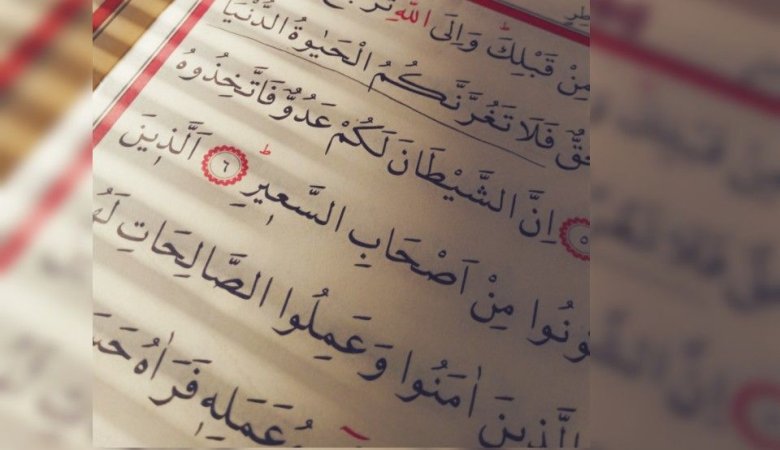 طِرِ
مِنْ قَبْلِكَ وَاِلَى اللّٰهِ تُرْجَعُ
حَقٌّ فَلَا تَغُرَّنَّكُمُ الْحَيٰوةُ الدُّنْيَا
٥ اِنَّ الشَّيْطَانَ لَكُمْ عَدُوٌّ فَاتَّخِذُوهُ
ونُوا مِنْ اَصْحَابِ السَّعِيرِ ٦ اَلَّذِينَ
الَّذِينَ اٰمَنُوا وَعَمِلُوا الصَّالِحَاتِ لَهُ
عَمَلِهِ فَرَاٰهُ حَسَ